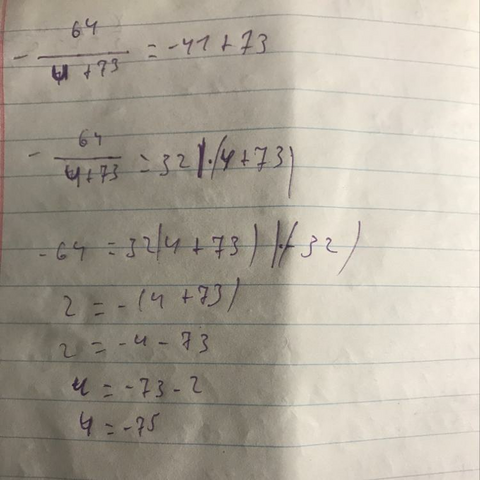 - 64/(y+73) = -41+73
- 64/(y+73) = 32 | ·(y+73)
-64 = 32(y+73) | :(-32)
2 = -(y+73)
2 = -y-73
y = -73-2
y = -75